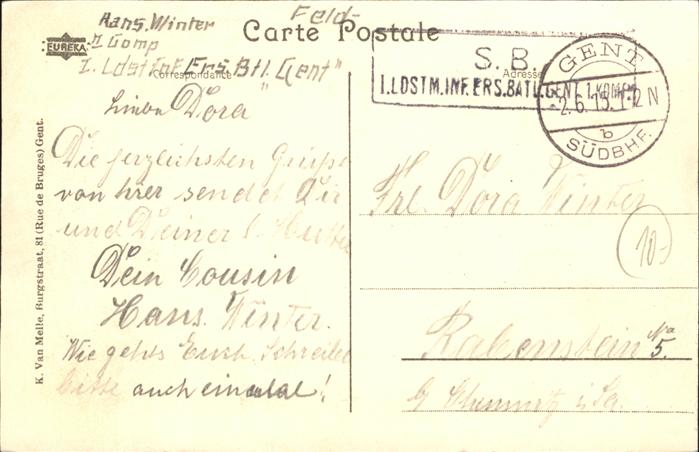 Feld-
Carte Postale
Hans. Winter
EUREKA
Comp
I. Ldst Inf. Ers. Btl. "Gent"
Correspondance
Adresse
S. B.
I. LDSTM. INF. ERS. BATL. GENT. 1. KOMP.
GENT
2.6.15. 1-2 N
b
SÜDBHF.
Liebe Dora
Die herzlichsten Grüße
von hier sendet Dir
und Deiner l. Mutter
Dein Cousin
Hans. Winter.
Wie gehts Euch. Schreibet
bitte auch einmal!
Frl. Dora Winter
10-
Rabenstein No 5.
b/ Chemnitz i. Sa.
K. Van Melle, Burgstraat, 81 (Rue de Bruges) Gent.